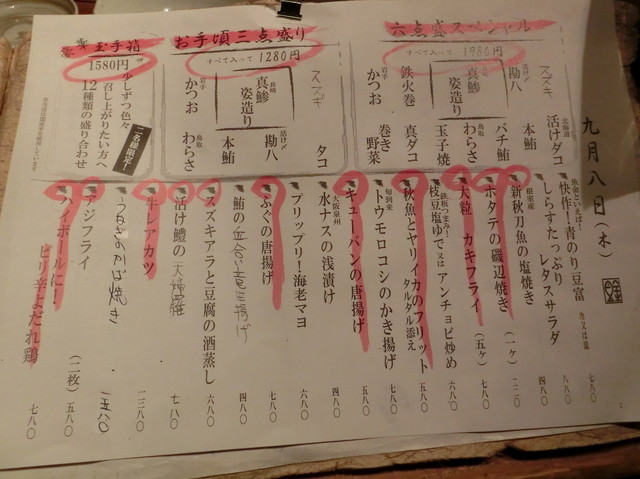 九月八日（木）
六点盛スペシャル
すべて入って 1980円
スズキ
北海道 活けダコ
勘八
本鮪
真鯵 姿造り
バチ鮪
鳥取 わらさ
玉子焼
鉄火巻
真ダコ
岩手 かつお
野菜巻き
お手頃三点盛り
すべて入って 1280円
スズキ
タコ
長崎 真鯵 姿造り
活け〆 勘八
本鮪
岩手 かつお
鳥取 わらさ
玉手箱
1580円
少しずつ色々
召し上がりたい方へ
12種類の盛り合わせ
二名様限定！
魚金といえば！ 快作！青のり豆富 七八〇
しらすたっぷり レタスサラダ 八八〇
根室産 新秋刀魚の塩焼き 四八〇
ホタテの磯辺焼き （一ヶ） 三二〇
大粒 カキフライ （五ヶ） 七八〇
鉄板つまみ！ 枝豆塩ゆで 又は アンチョビ炒め 六八〇
秋魚とヤリイカのフリット タルタル添え 五八〇
旬到来 トウモロコシのかき揚げ 七八〇
キューバンの唐揚げ 五八〇
大阪泉州 水ナスの浅漬け 四八〇
プリップリ！海老マヨ 六八〇
ふぐの唐揚げ 七八〇
鮪の 揚げ 四八〇
スズキアラと豆腐の酒蒸し 六八〇
活け鱧の天婦羅 七八〇
生レアカツ 一二八〇
うなぎかば焼き
アジフライ （二枚） 五八〇
ハイボールに！ ピリ辛よだれ鶏 七八〇